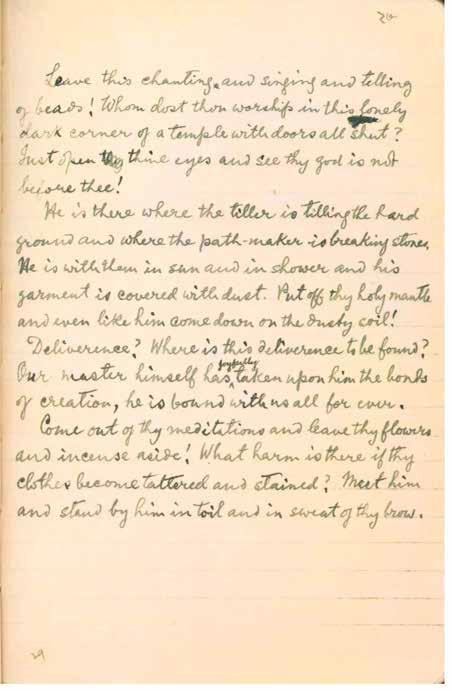 Leave this chanting and singing and telling
of beads! Whom dost thou worship in this lonely
dark corner of a temple with doors all shut?
Just open thine eyes and see thy god is not
before thee!
He is there where the tiller is tilling the hard
ground and where the path-maker is breaking stones.
He is with them in sun and in shower and his
garment is covered with dust. Put off thy holy mantle
and even like him come down on the dusty soil!
Deliverance? Where is this deliverance to be found?
Our master himself has joyfully taken upon him the bonds
of creation, he is bound with us all for ever.
Come out of thy meditations and leave thy flowers
and incense aside! What harm is there if thy
clothes become tattered and stained? Meet him
and stand by him in toil and in sweat of thy brow.